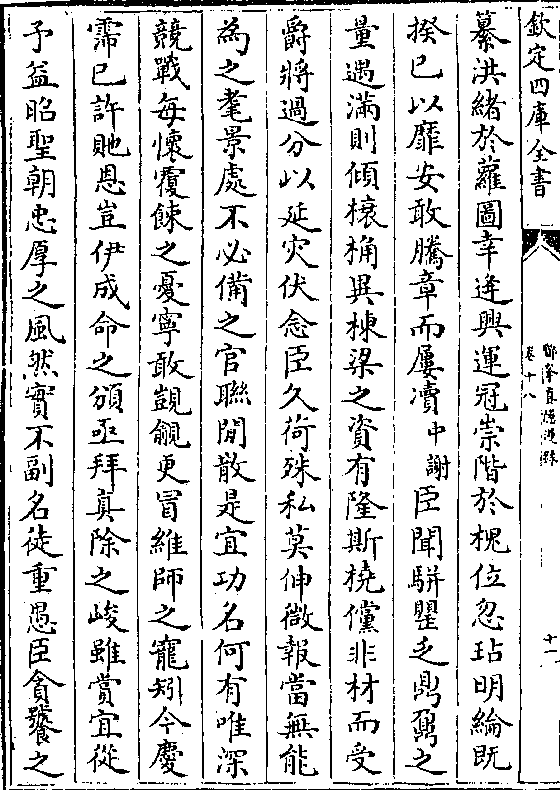 欽定四庫全書
卷十八
十一
纂洪緒於蘿圖幸逢興運冠崇階於槐位忽玷明綸既
揆已以靡安敢騰章而屢瀆中謝臣聞缾罌乏鼎鼐之
量遇滿則傾榱桷異棟梁之資有隆斯橈儻非材而受
爵將過分以延災伏念臣久荷殊私莫伸微報當無能
為之耄景處不必備之官聯閒散是宜功名何有唯深
競戰每懷覆餗之憂寧敢覬覦更冒維師之寵矧今慶
霈已許貤恩豈伊成命之頒亟拜真除之峻雖賞宜從
予益昭聖朝忠厚之風然實不副名徒重愚臣貪饕之